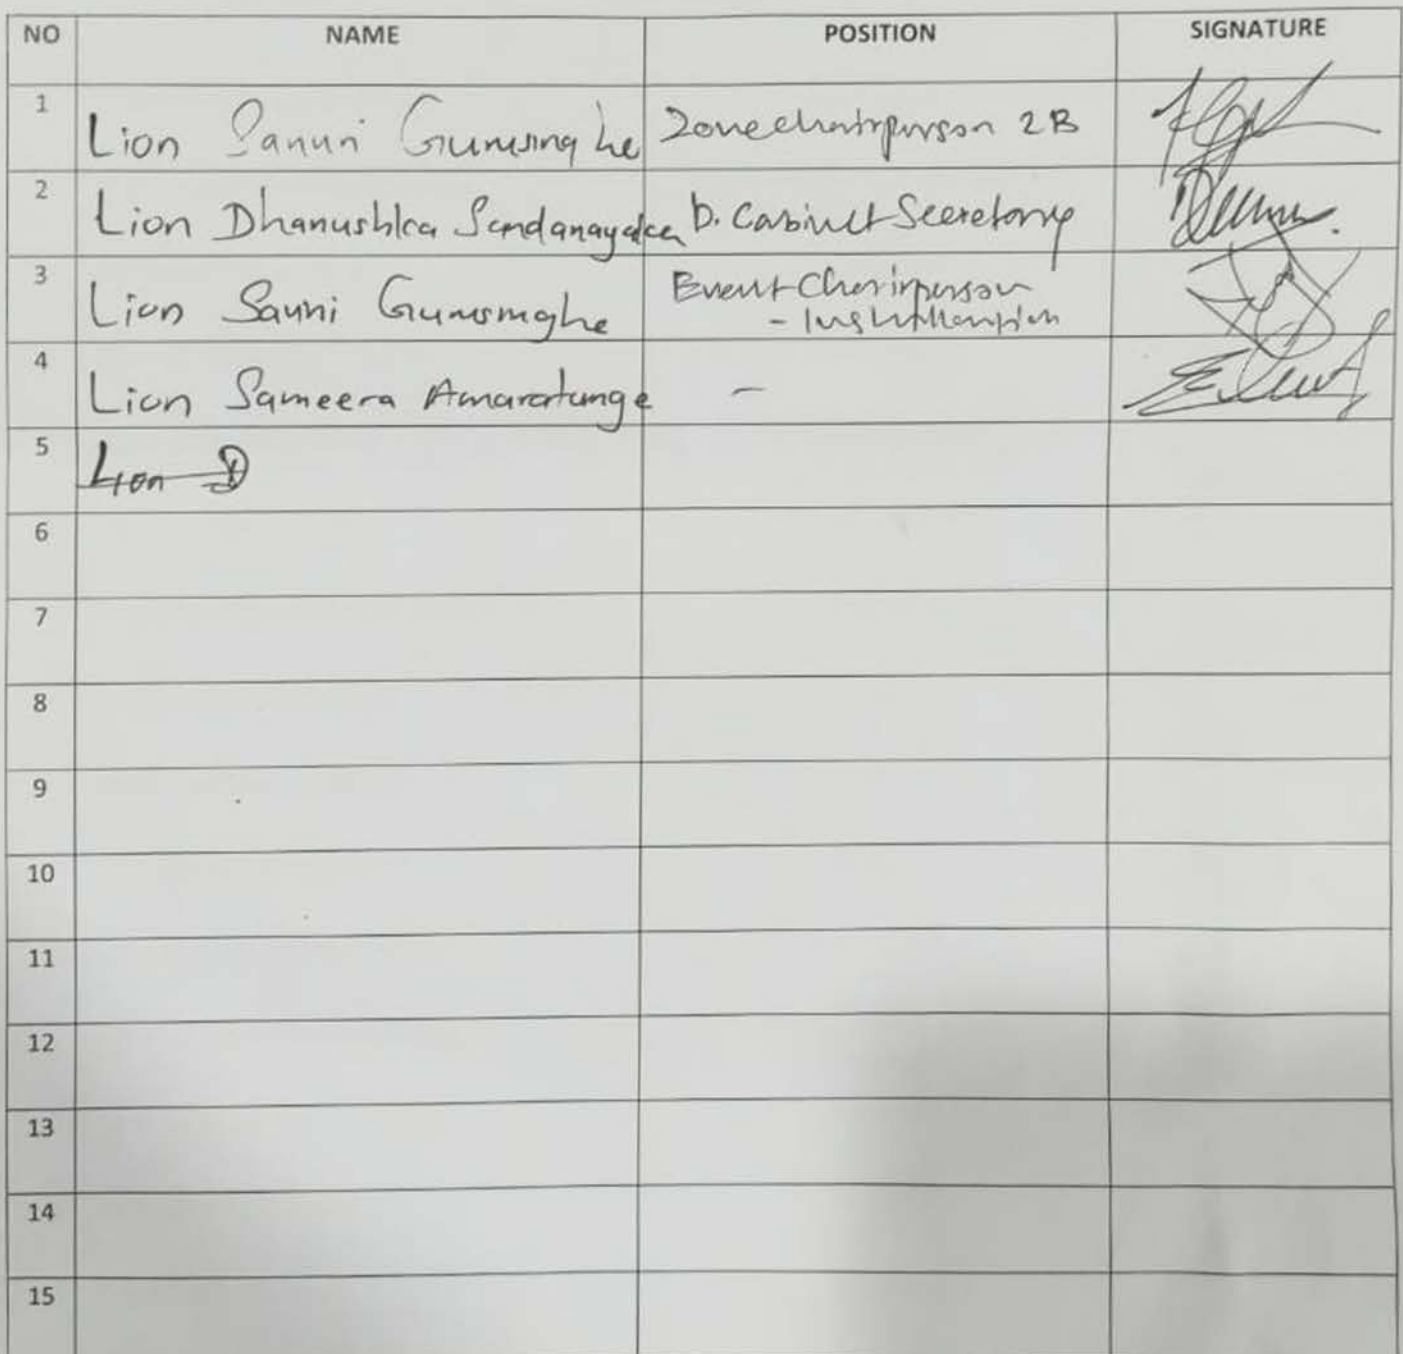 NO NAME POSITION SIGNATURE
1 Lion Sanuri Gunasinghe Zone Chairperson 2B
2 Lion Dhanushka Sandanayaka D. Cabinet Secretary
3 Lion Sauni Gunasinghe Event Chairperson
- Institution
4 Lion Sameera Amaratunge -
5 Lion D
6
7
8
9
10
11
12
13
14
15